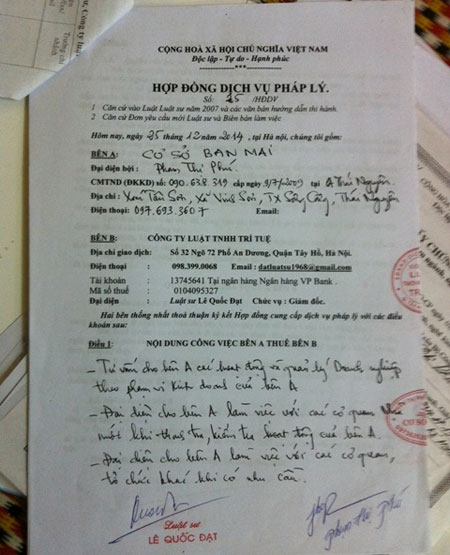 CỘNG HOÀ XÃ HỘI CHỦ NGHĨA VIỆT NAM
Độc lập - Tự do - Hạnh phúc
----------***----------
HỢP ĐỒNG DỊCH VỤ PHÁP LÝ.
Số: 25 /HĐDV
1 Căn cứ vào Luật Luật sư năm 2007 và các văn bản hướng dẫn thi hành.
2 Căn cứ Đơn yêu cầu mời Luật sư và Biên bản làm việc
Hôm nay, ngày 25 tháng 12 năm 2014, tại Hà Nội, chúng tôi gồm:
BÊN A: CƠ SỞ BAN MAI
Đại diện bởi : Phạm Thị Phú.
CMTND (ĐKKD) số: 090.638.319 cấp ngày 9/7/2009 tại CA Thái Nguyên.
Địa chỉ: Xóm Tân Sơn, Xã Vinh Sơn, Tx Sông Công, Thái Nguyên
Điện thoại: 097.693.3607 Email:
BÊN B: CÔNG TY LUẬT TNHH TRÍ TUỆ
Địa chỉ giao dịch: Số 32 Ngõ 72 Phố An Dương, Quận Tây Hồ, Hà Nội.
Điện thoại : 098.399.0068 Email : datluatsu1968@gmail.com
Tài khoản : 13745641 Tại ngân hàng Ngân hàng VP Bank .
Mã số thuế : 0104095327
Đại diện : Luật sư Lê Quốc Đạt Chức vụ : Giám đốc.
Hai bên thống nhất thoả thuận ký kết Hợp đồng cung cấp dịch vụ pháp lý với các điều
khoản sau:
Điều 1: NỘI DUNG CÔNG VIỆC BÊN A THUÊ BÊN B
- Tư vấn cho bên A các hoạt động và quản lý Doanh nghiệp
theo phạm vi Kinh doanh của bên A
- Đại diện cho bên A làm việc với các cơ quan Nhà
nước khi thanh tra, kiểm tra hoạt động của bên A.
- Đại diện cho bên A làm việc với các cơ quan,
tổ chức khác khi có nhu cầu.
Luật sư
LÊ QUỐC ĐẠT
Phạm Thị Phú